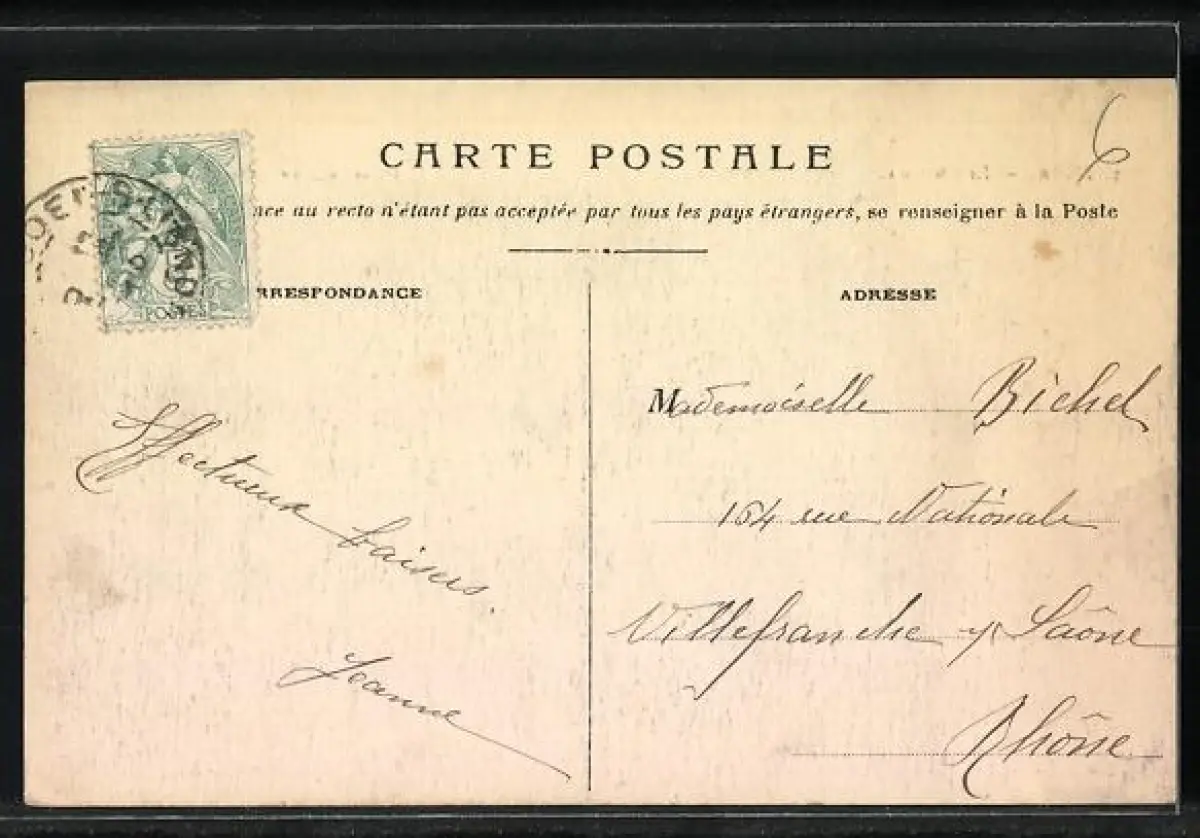 6
CARTE POSTALE
nce au recto n'étant pas acceptée par tous les pays étrangers, se renseigner à la Poste
RRESPONDANCE
ADRESSE
POSTES
Affectueux baisers.
Jeanne
Mademoiselle Bichel
164 rue Nationale
Villefranche s/ Saône
Rhône